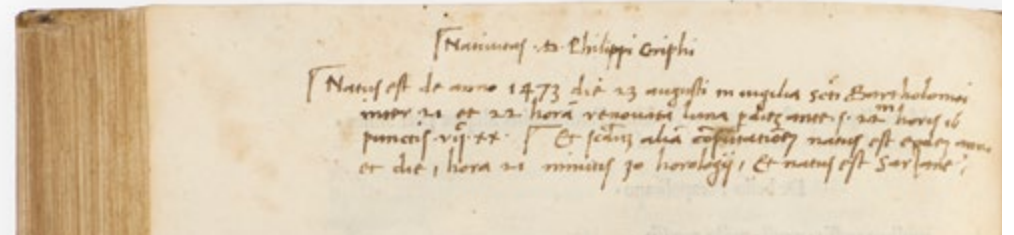 Nativitas d. Philippi Griphi
Natus est de anno 1473 die 23 augusti in vigilia scti Bartholomei
inter 21 et 22 horā renovata luna ante horis 16
punctis Et aliā natus est anno
et die, hora 21 minutis 30 horologij, Et natus est Sarzane